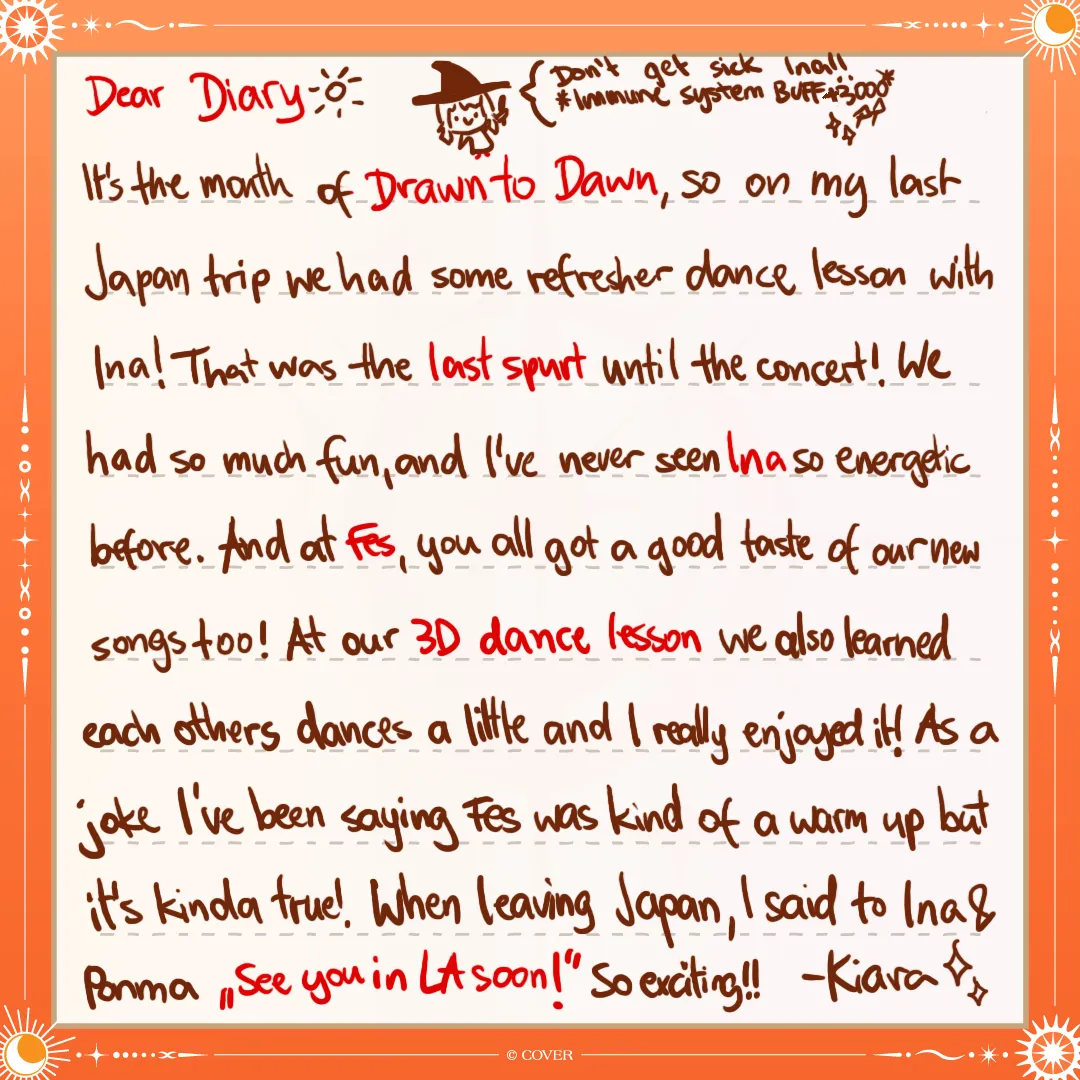 Dear Diary
Don't get sick Ina!!
*Immune system BUFF +3,000*
It's the month of Drawn to Dawn, so on my last
Japan trip we had some refresher dance lesson with
Ina! That was the last spurt until the concert! We
had so much fun, and I've never seen Ina so energetic
before. And at Fes, you all got a good taste of our new
songs too! At our 3D dance lesson we also learned
each others dances a little and I really enjoyed it! As a
joke I've been saying Fes was kind of a warm up but
it's kinda true! When leaving Japan, I said to Ina &
Ponma „See you in LA soon!“ So exciting!! -Kiara
© COVER